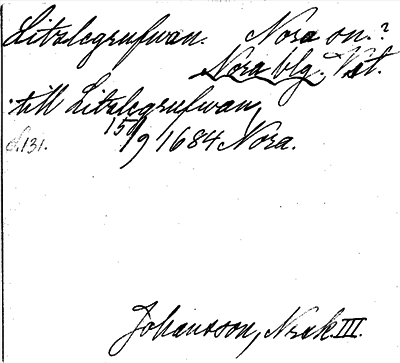 Litslegrufwan. Nora sn.?
Nora blg. Vst.
till Litslegrufwan,
d. 131. 15/9 1684 Nora.
Johansson, Norak. III.